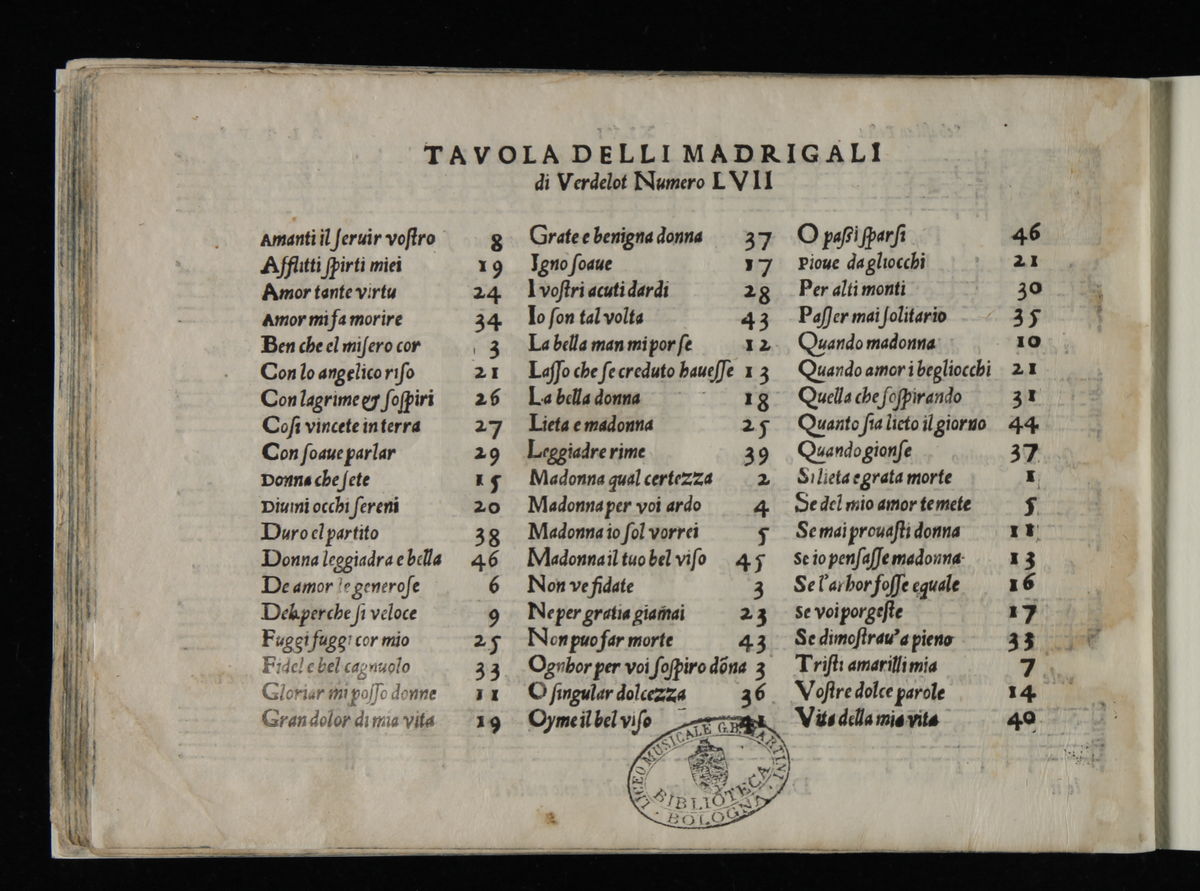 TAVOLA DELLI MADRIGALI
di Verdelot Numero LVII
Amanti il ſeruir voſtro 8
Afflitti ſpirti miei 19
Amor tante virtu 24
Amor mi fa morire 34
Ben che el miſero cor 3
Con lo angelico riſo 21
Con lagrime & ſoſpiri 26
Coſi vincete in terra 27
Con ſoaue parlar 29
Donna che ſete 15
Diuini occhi ſereni 20
Duro el partito 38
Donna leggiadra e bella 46
De amor le generoſe 6
Deh perche ſi veloce 9
Fuggi fuggi cor mio 25
Fidel e bel cagnuolo 33
Gloriar mi poſſo donne 11
Gran dolor di mia vita 19
Grate e benigna donna 37
Igno ſoaue 17
I voſtri acuti dardi 28
Io ſon tal volta 43
La bella man mi porſe 12
Laſſo che ſe creduto haueſſe 13
La bella donna 18
Lieta e madonna 25
Leggiadre rime 39
Madonna qual certezza 2
Madonna per voi ardo 4
Madonna io ſol vorrei 5
Madonna il tuo bel viſo 45
Non ve fidate 3
Ne per gratia giamai 23
Non puo far morte 43
Ognhor per voi ſoſpiro dõna 3
O ſingular dolcezza 36
Oyme il bel viſo 41
O paſſi ſparſi 46
Pioue da gliocchi 21
Per alti monti 30
Paſſer mai ſolitario 35
Quando madonna 10
Quando amor i begliocchi 21
Quella che ſoſpirando 31
Quanto ſia lieto il giorno 44
Quando gionſe 37
Si lieta e grata morte 1
Se del mio amor temete 5
Se mai prouaſti donna 11
Se io penſaſſe madonna 13
Se l'arbor foſſe equale 16
Se voi porgeſte 17
Se dimoſtrau'a pieno 33
Triſti amarilli mia 7
Voſtre dolce parole 14
Vita della mia vita 40
LICEO MUSICALE G.B. MARTINI
BIBLIOTECA
BOLOGNA